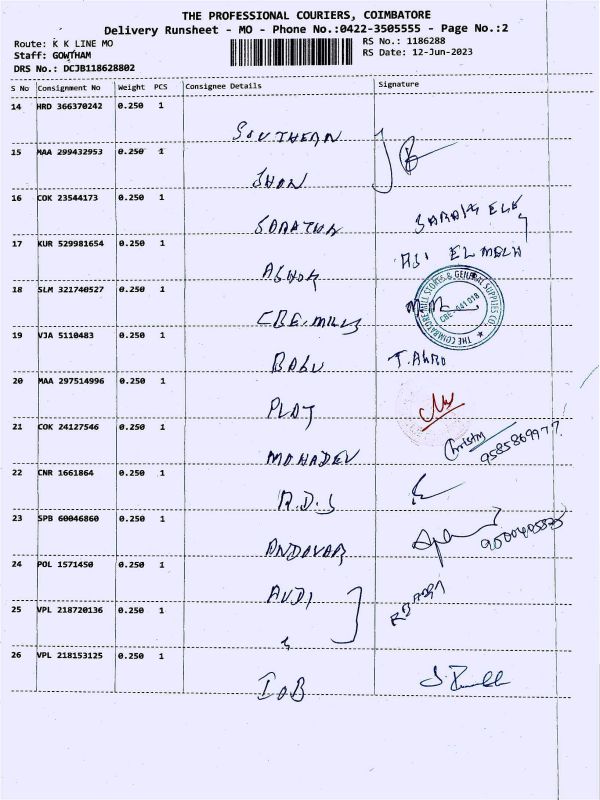 THE PROFESSIONAL COURIERS, COIMBATORE
Delivery Runsheet - MO - Phone No.:0422-3505555 - Page No.:2
Route: K K LINE MO
Staff: GOWTHAM
DRS No.: DCJB118628802
RS No.: 1186288
RS Date: 12-Jun-2023
S No Consignment No Weight PCS Consignee Details Signature
14 HRD 366370242 0.250 1
SOUTHERN
15 MAA 299432953 0.250 1
SHON
16 COK 23544173 0.250 1
17 KUR 529981654 0.250 1
ASHOK
18 SLM 321740527 0.250 1
CBE. MILLS
THE COIMBATORE MILL STORES & GENERAL SUPPLIES CO.
CBE - 641 018
19 VJA 5110483 0.250 1
BALU
20 MAA 297514996 0.250 1
PLOT
21 COK 24127546 0.250 1
MAHADEV
Christy
9585869977
22 CNR 1661864 0.250 1
R.D.S
23 SPB 60046860 0.250 1
ANDAVAR
24 POL 1571450 0.250 1
AUDI
25 VPL 218720136 0.250 1
26 VPL 218153125 0.250 1
IOB